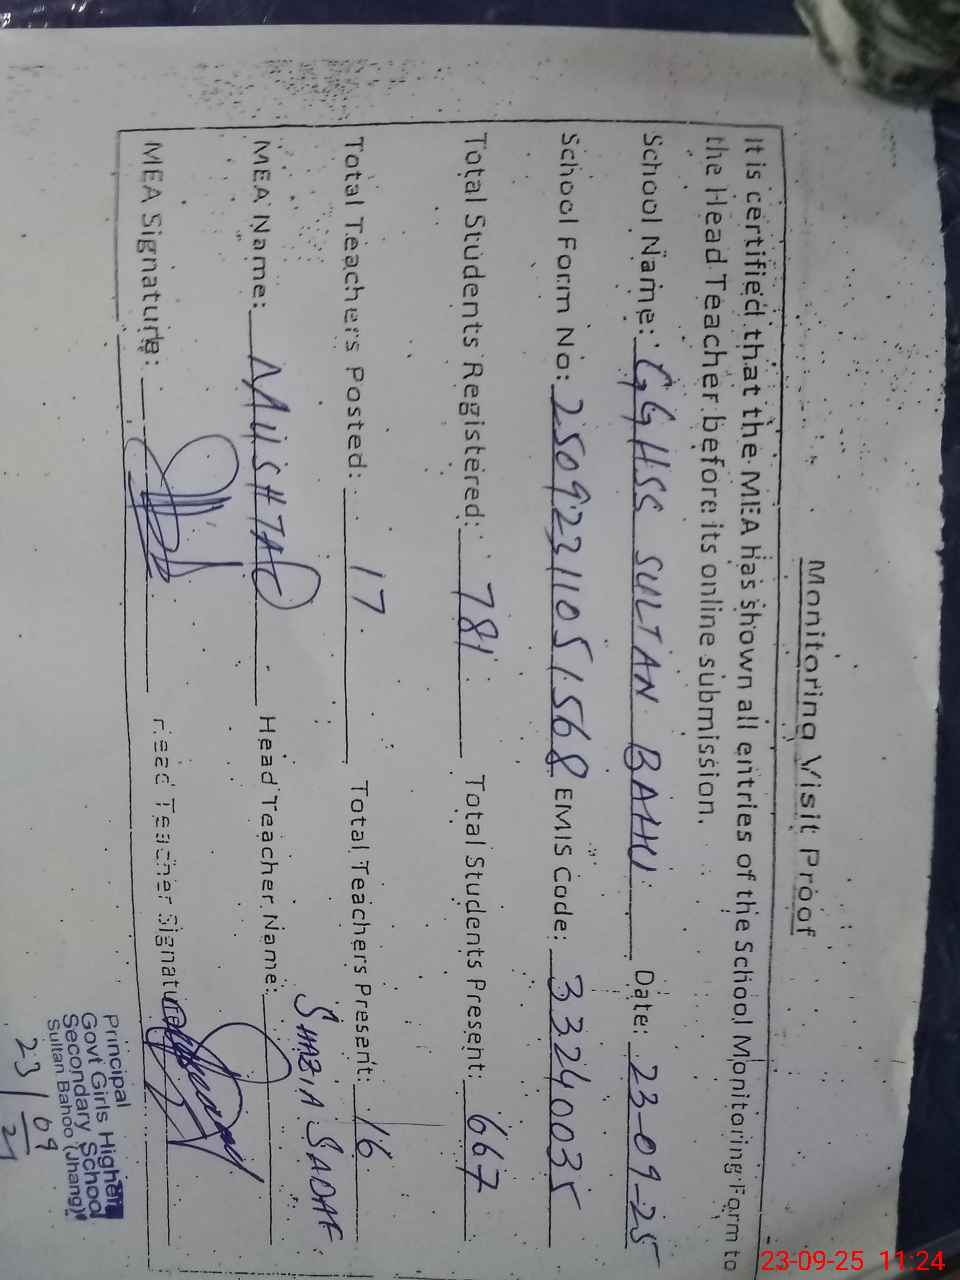 Monitoring Visit Proof
It is certified that the MEA has shown all entries of the School Monitoring Form to
the Head Teacher before its online submission.
School Name: GGHSS SULTAN BAHU Date: 23-09-25
School Form No: 25092311051568 EMIS Code: 33240035
Total Students Registered: 781 Total Students Present: 667
Total Teachers Posted: 17 Total Teachers Present: 16
MEA Name: MUSHTAQ Head Teacher Name: SHAZIA SADAF
MEA Signature: Head Teacher Signature
Principal
Govt Girls Higher
Secondary School
Sultan Bahoo (Jhang)
23/09
23-09-25 11:24